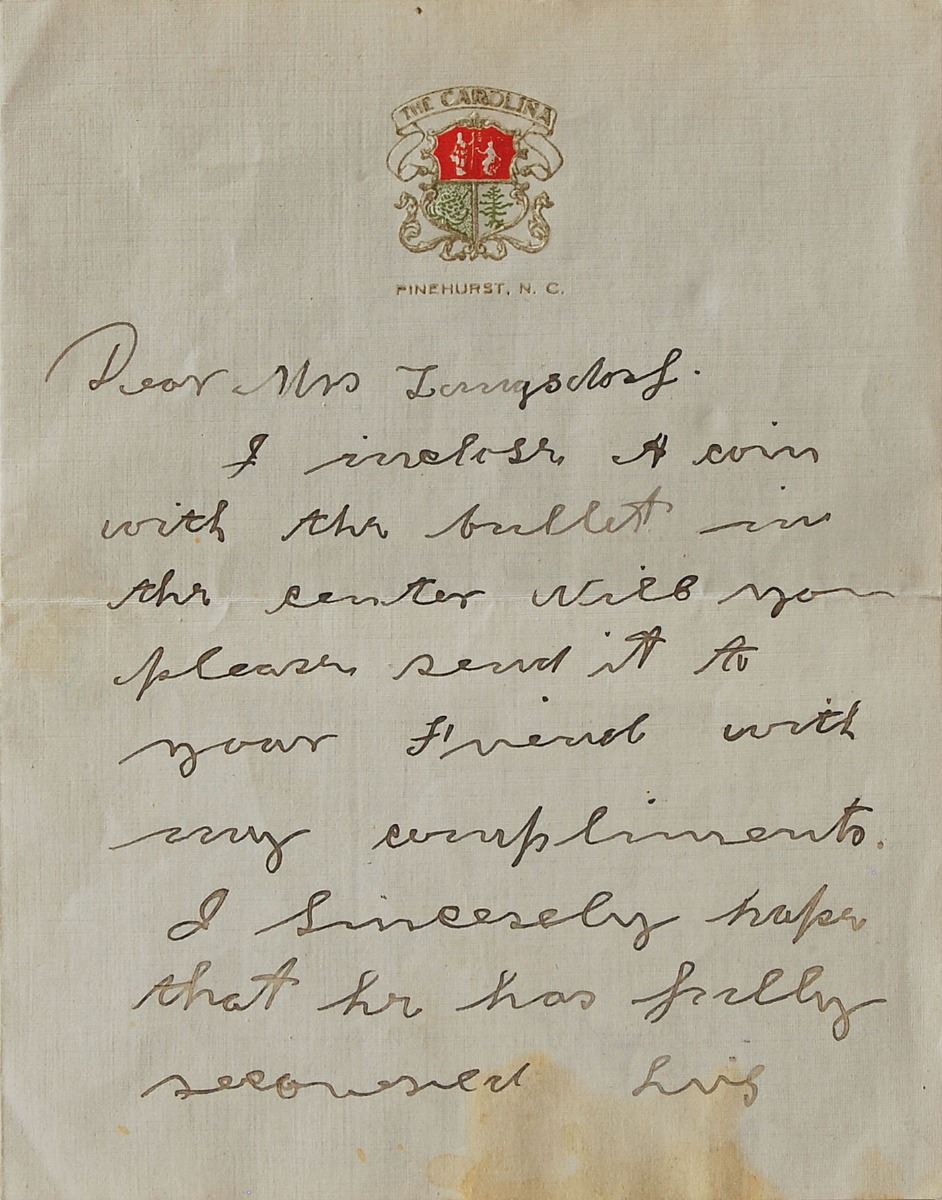 THE CAROLINA
PINEHURST, N. C.
Dear Mrs Langsdorf.
I inclose A coin
with the bullet in
the center Will you
please send it to
your Friend with
my compliments.
I Sincerely hope
that he has fully
recovered his